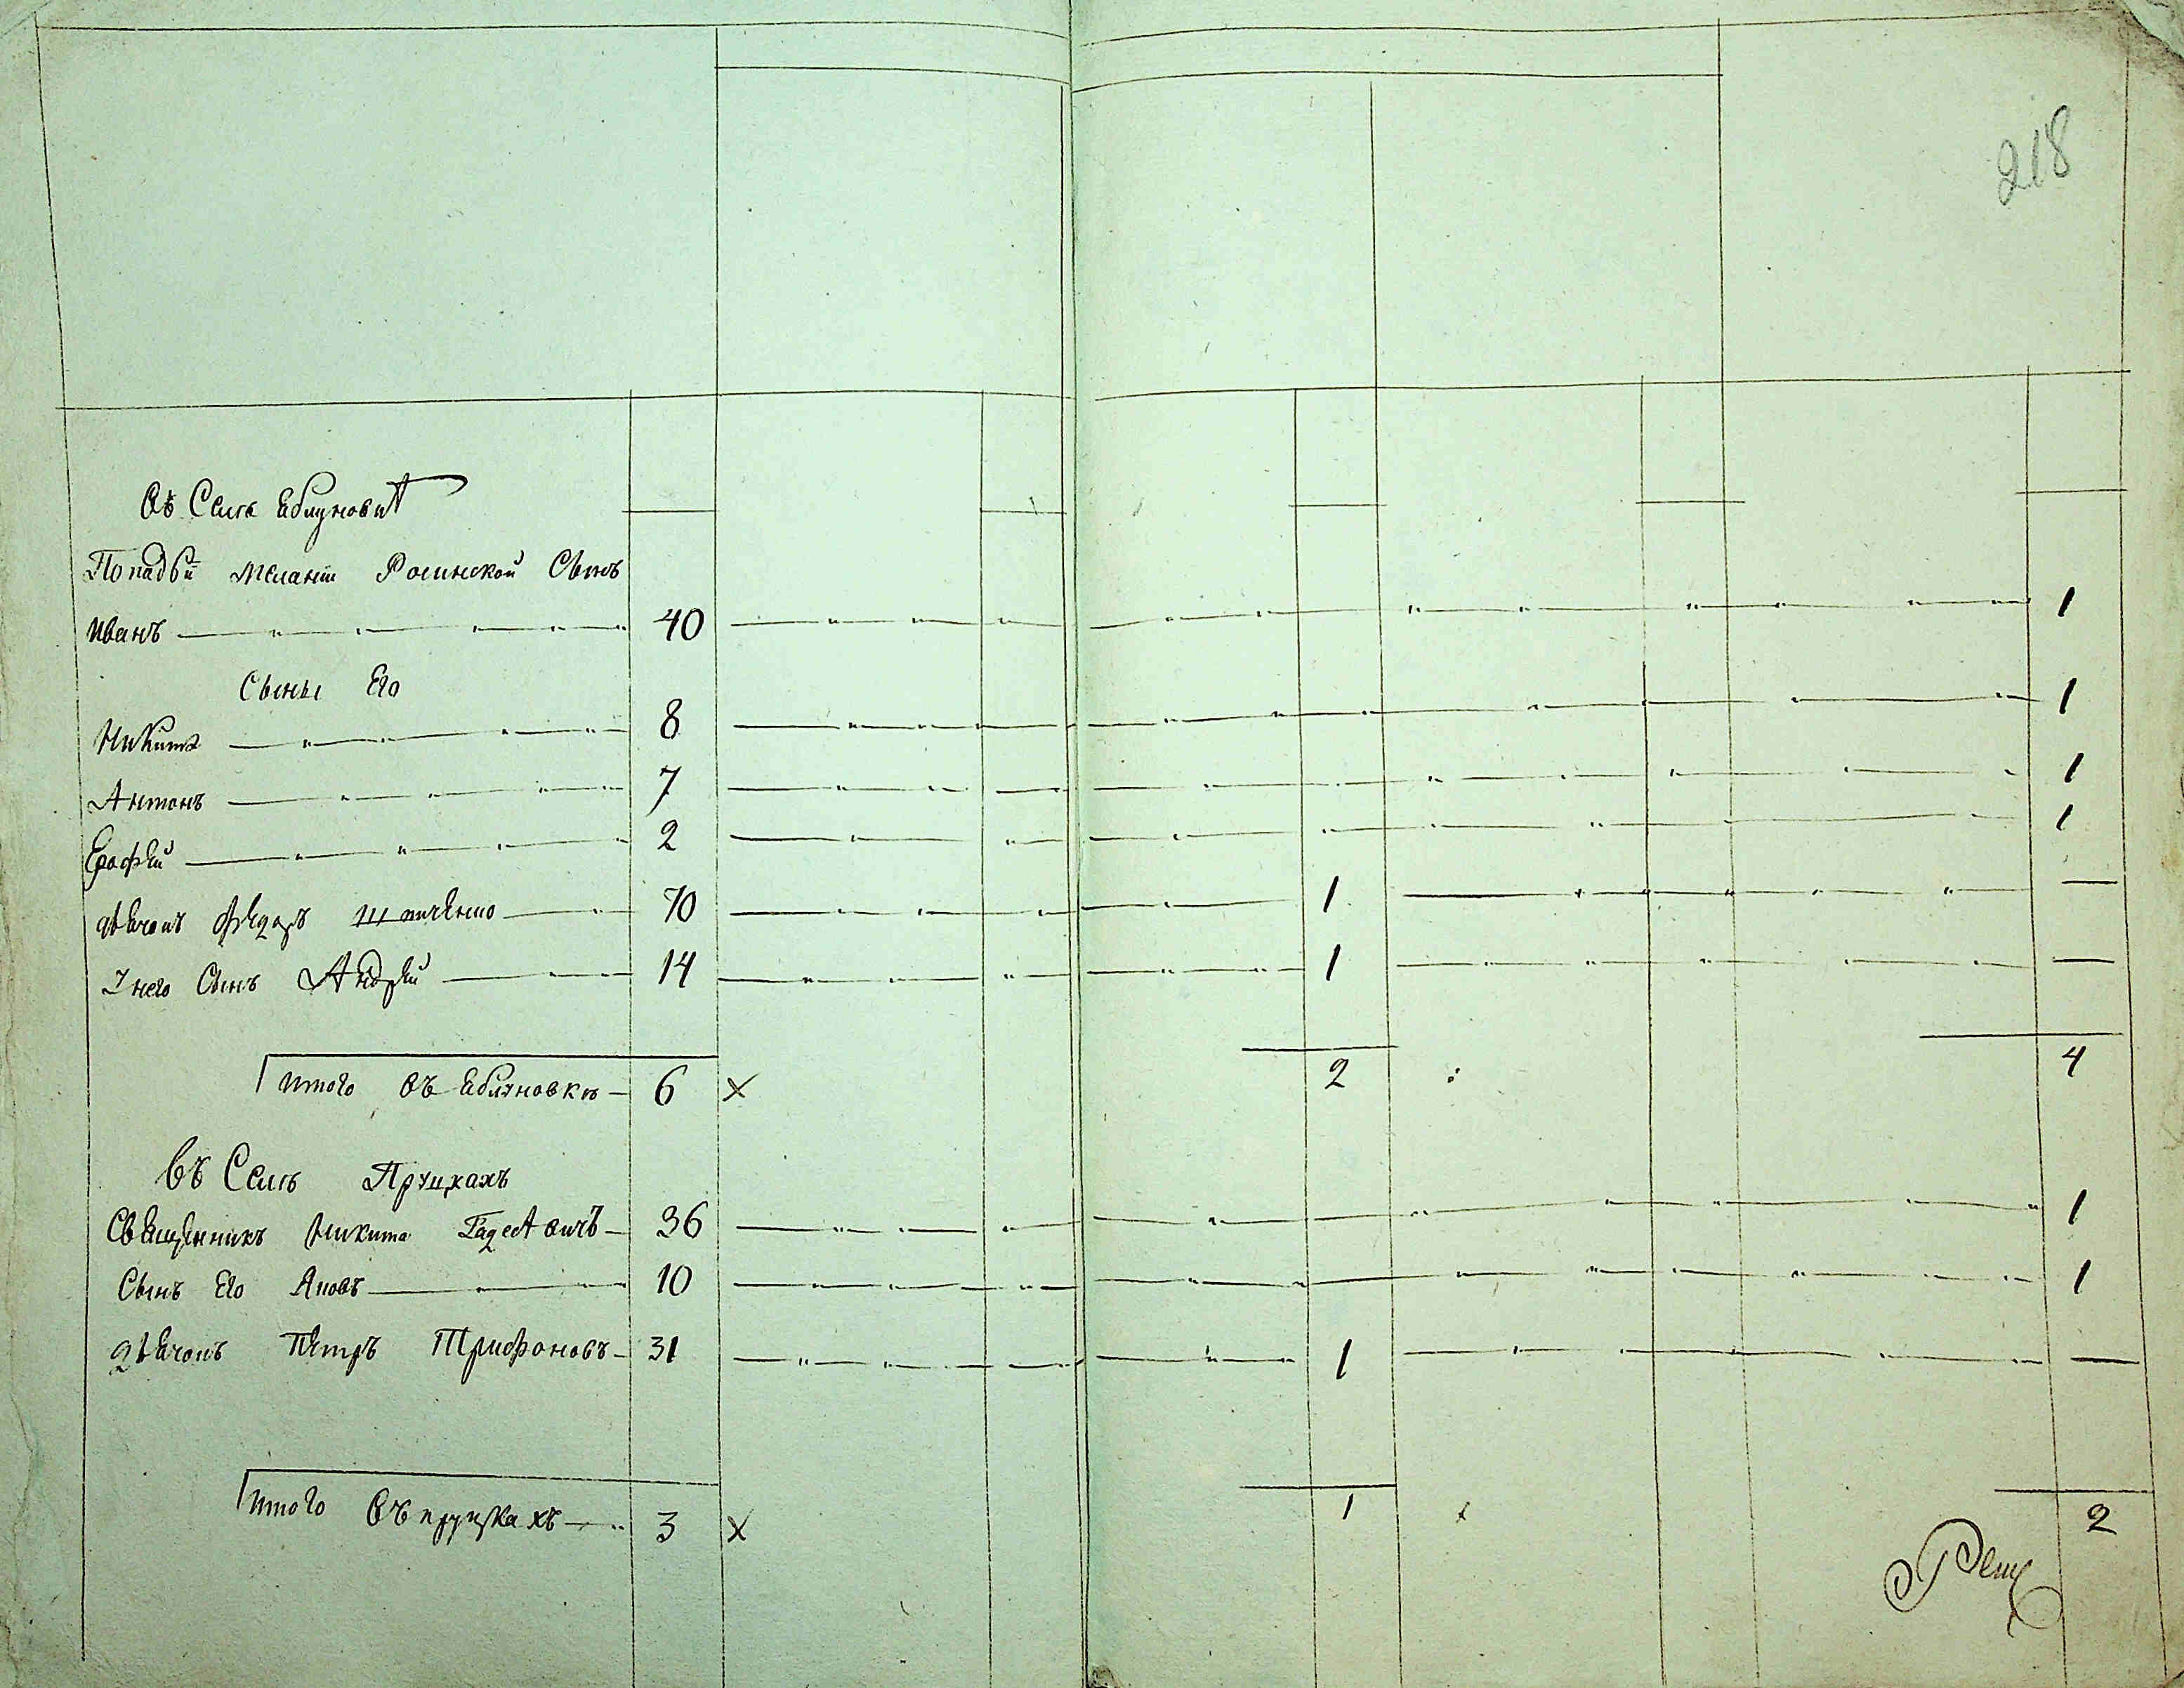 218
въ Селѣ Еблуновкѣ
Попадьи Меланіи Росинской Сынъ
Иванъ 40 1
Сыны Его
Никита 8 1
Антонъ 7 1
Ерофѣй 2 1
дьячокъ Федоръ 70 1 —
У него Сынъ Андрѣй 14 1 —
Итого въ Еблуновкѣ 6 x 2 4
въ Селѣ Пруцкахъ
Священникъ Никита 36 1
Сынъ Его Яковъ 10 1
дьячокъ Петръ Трифоновъ 31 1 —
Итого въ пруцкахъ 3 x 1 2